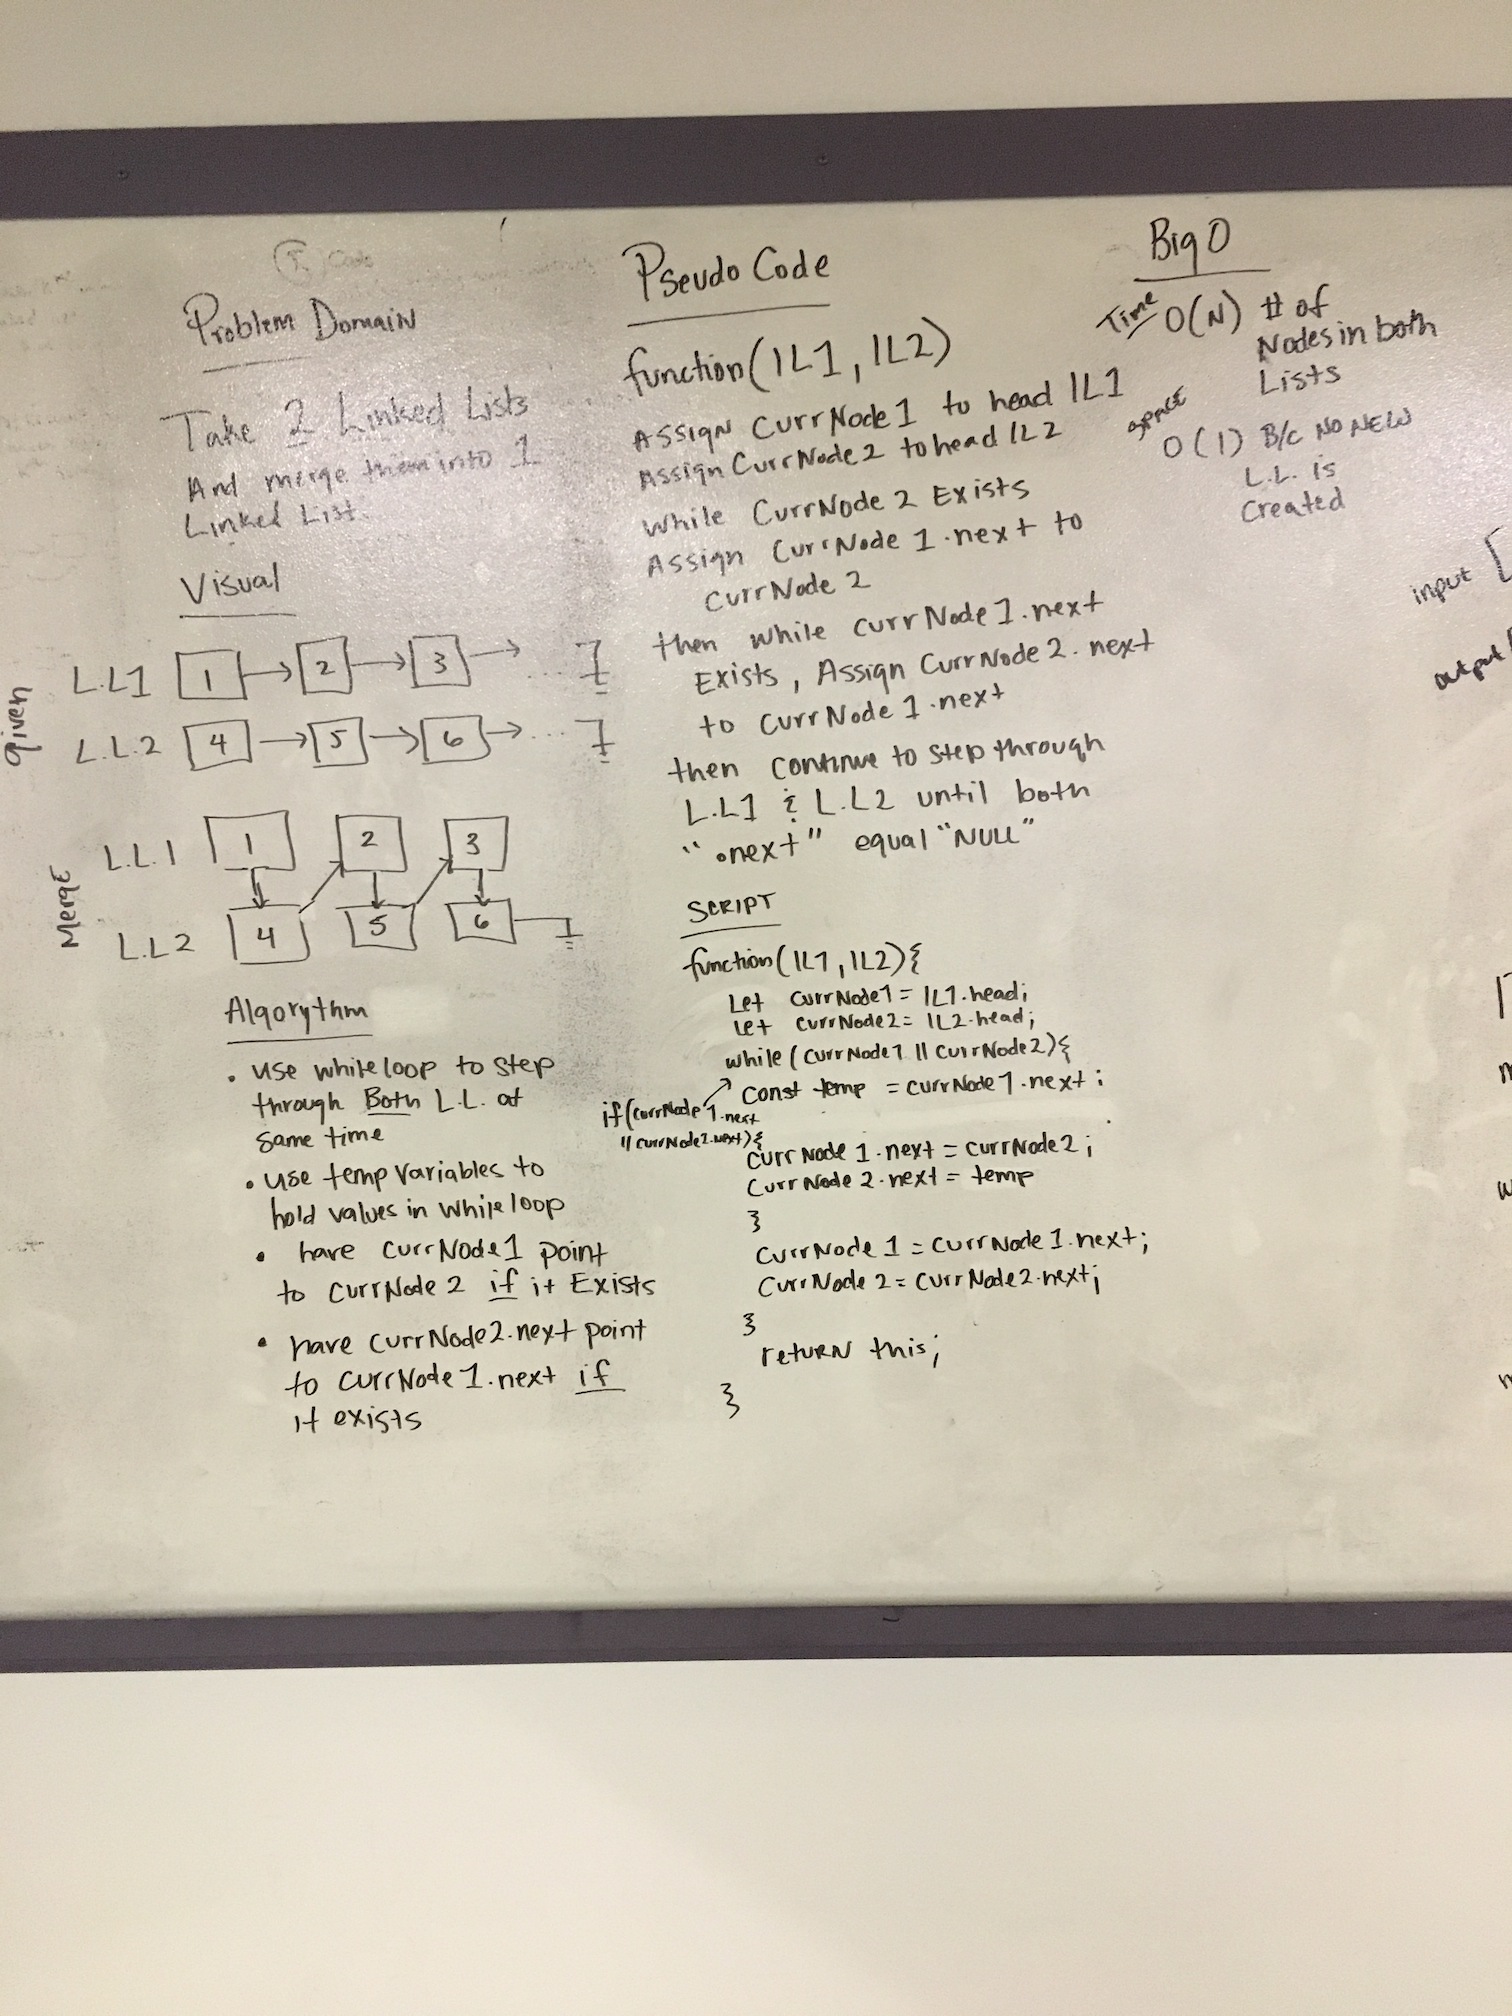 Problem Domain
Take 2 Linked Lists
And merge them into 1
Linked List.
Visual
given
L.L1 1 2 3 ...
L.L.2 4 5 6 ...
Merge
L.L.1 1 2 3
L.L2 4 5 6
Algorythm
• use while loop to step
through Both L.L. at
same time
• use temp variables to
hold values in while loop
• have currNode1 point
to currNode 2 if it Exists
• have currNode2.next point
to currNode1.next if
it exists
Pseudo Code
function(lL1, lL2)
Assign CurrNode1 to head lL1
Assign CurrNode2 to head lL2
while CurrNode 2 Exists
Assign CurrNode 1.next to
CurrNode 2
then while currNode1.next
Exists, Assign CurrNode2.next
to currNode1.next
then continue to step through
L.L1 & L.L2 until both
".next" equal "NULL"
SCRIPT
function(lL1, lL2){
Let currNode1 = lL1.head;
Let currNode2 = lL2.head;
while (currNode1 || currNode2){
if(currNode1.next
|| currNode2.next){
Const temp = currNode1.next;
curr Node 1.next = currNode2;
Curr Node 2.next = temp
}
CurrNode 1 = currNode1.next;
CurrNode 2 = currNode2.next;
}
return this;
}
Big O
Time O(N) # of
Nodes in both
Lists
SPACE
O(1) B/c NO NEW
L.L. is
Created
input [
output